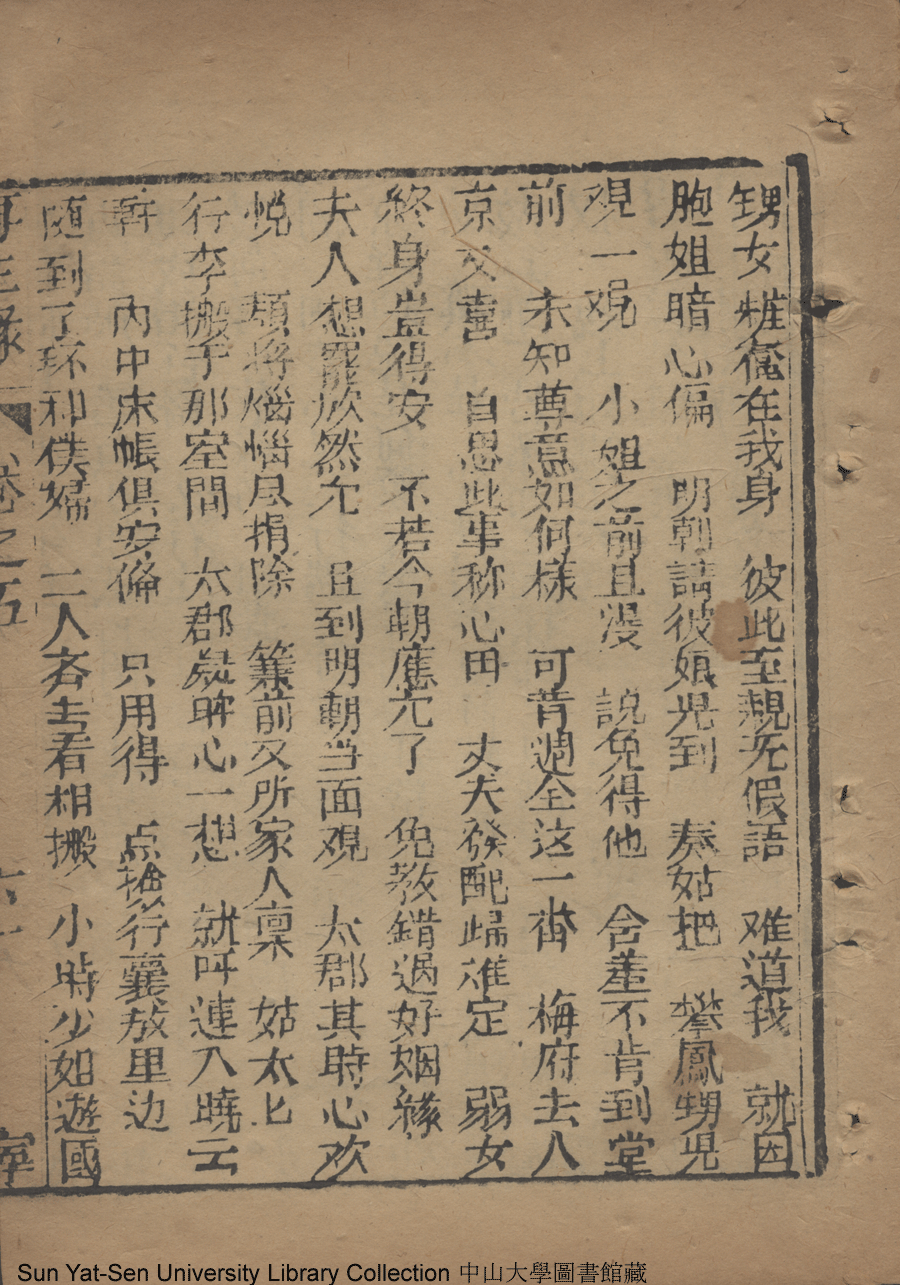 甥女雖奄在我身　彼此至親无假語　难道我　就因
胞姐暗心偏　明朝請彼娘兒到　奏姑把　攀鳳甥児
观一观　小姐之前且漫　説免得他　含羞不肯到堂
前　未知尊意如何樣　可昔週全这一𠫵　梅府去人
京又喜　自思此事称心田　丈夫發配歸难定　弱女
終身豈得安　不若今朝應允了　免教錯過好姻緣
夫人想罷欣然允　且到明朝当面观　太郡其時心欢
悦　類将烟惱尽捐除　篆前又所家人稟　姑太匕
行李搬于那室間　太郡㱕𥅆心一想　就呼連入曉云
軒　內中床帳俱安俻　只用得　点撿行囊放里边
随到了环和僕婦　二人斉去看相搬　小時少如遊園
再生緣　卷之五
Sun Yat-Sen University Library Collection 中山大學圖書館藏